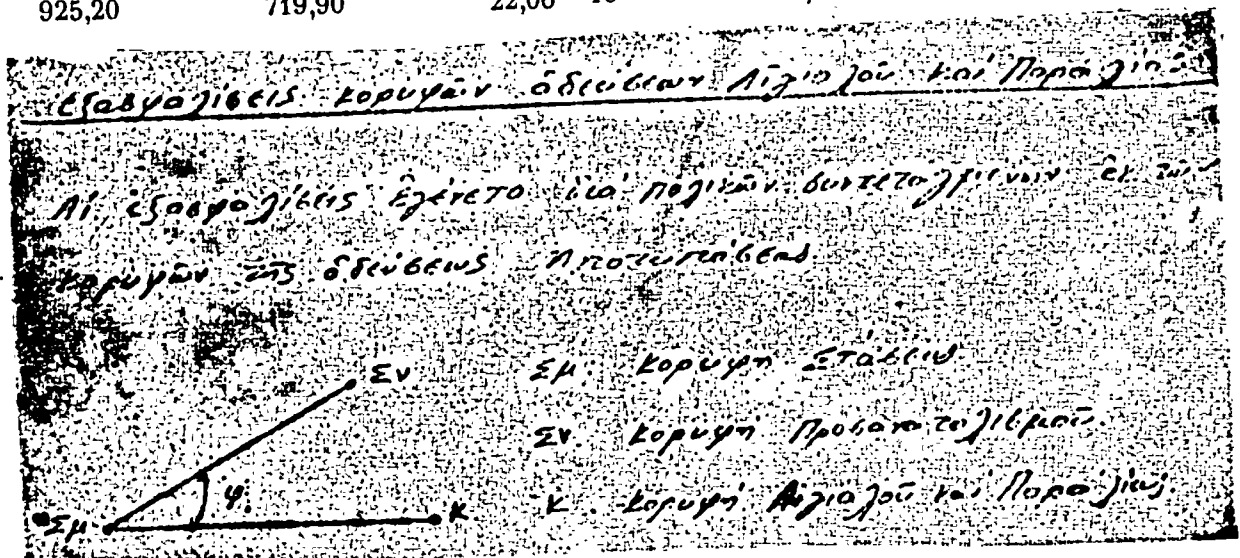 925,20 719,90 22,06
Ἐξασφαλίσεις κορυφῶν ὁδεύσεων Αἰγιαλοῦ καί Παραλίας
Αἱ ἐξασφαλίσεις ἐγένετο διά πολικῶν συντεταγμένων ἐκ τῶν
κορυφῶν τῆς ὁδεύσεως Ἀποτυπώσεως.
Σν
Σμ. Κορυφή Στάσεως
Σν. Κορυφή Προσανατολισμοῦ.
Σμ φ Κ
Κ. Κορυφή Αἰγιαλοῦ καί Παραλίας.